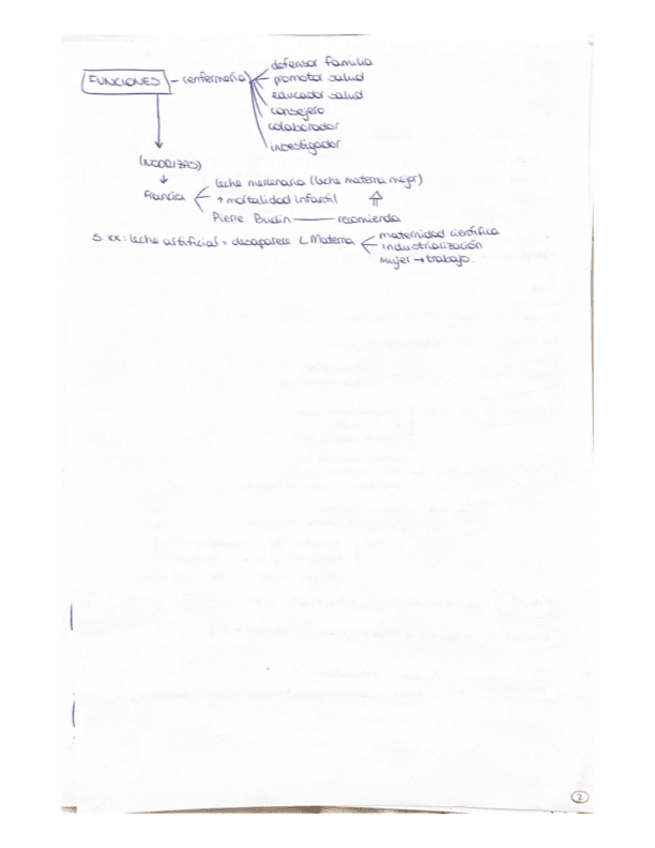 defensor familia
FUNCIONES - (enfermería) promotor salud
educador salud
consejero
colaborador
investigador
(NODRIZAS)
↓
Francia
leche mercenaria (leche materna mejor)
↑ mortalidad infantil ⇑
Pierre Budin — recomienda
S. XX: leche artificial = desaparece L. Materna
maternidad científica
industrialización
Mujer → trabajo.
2